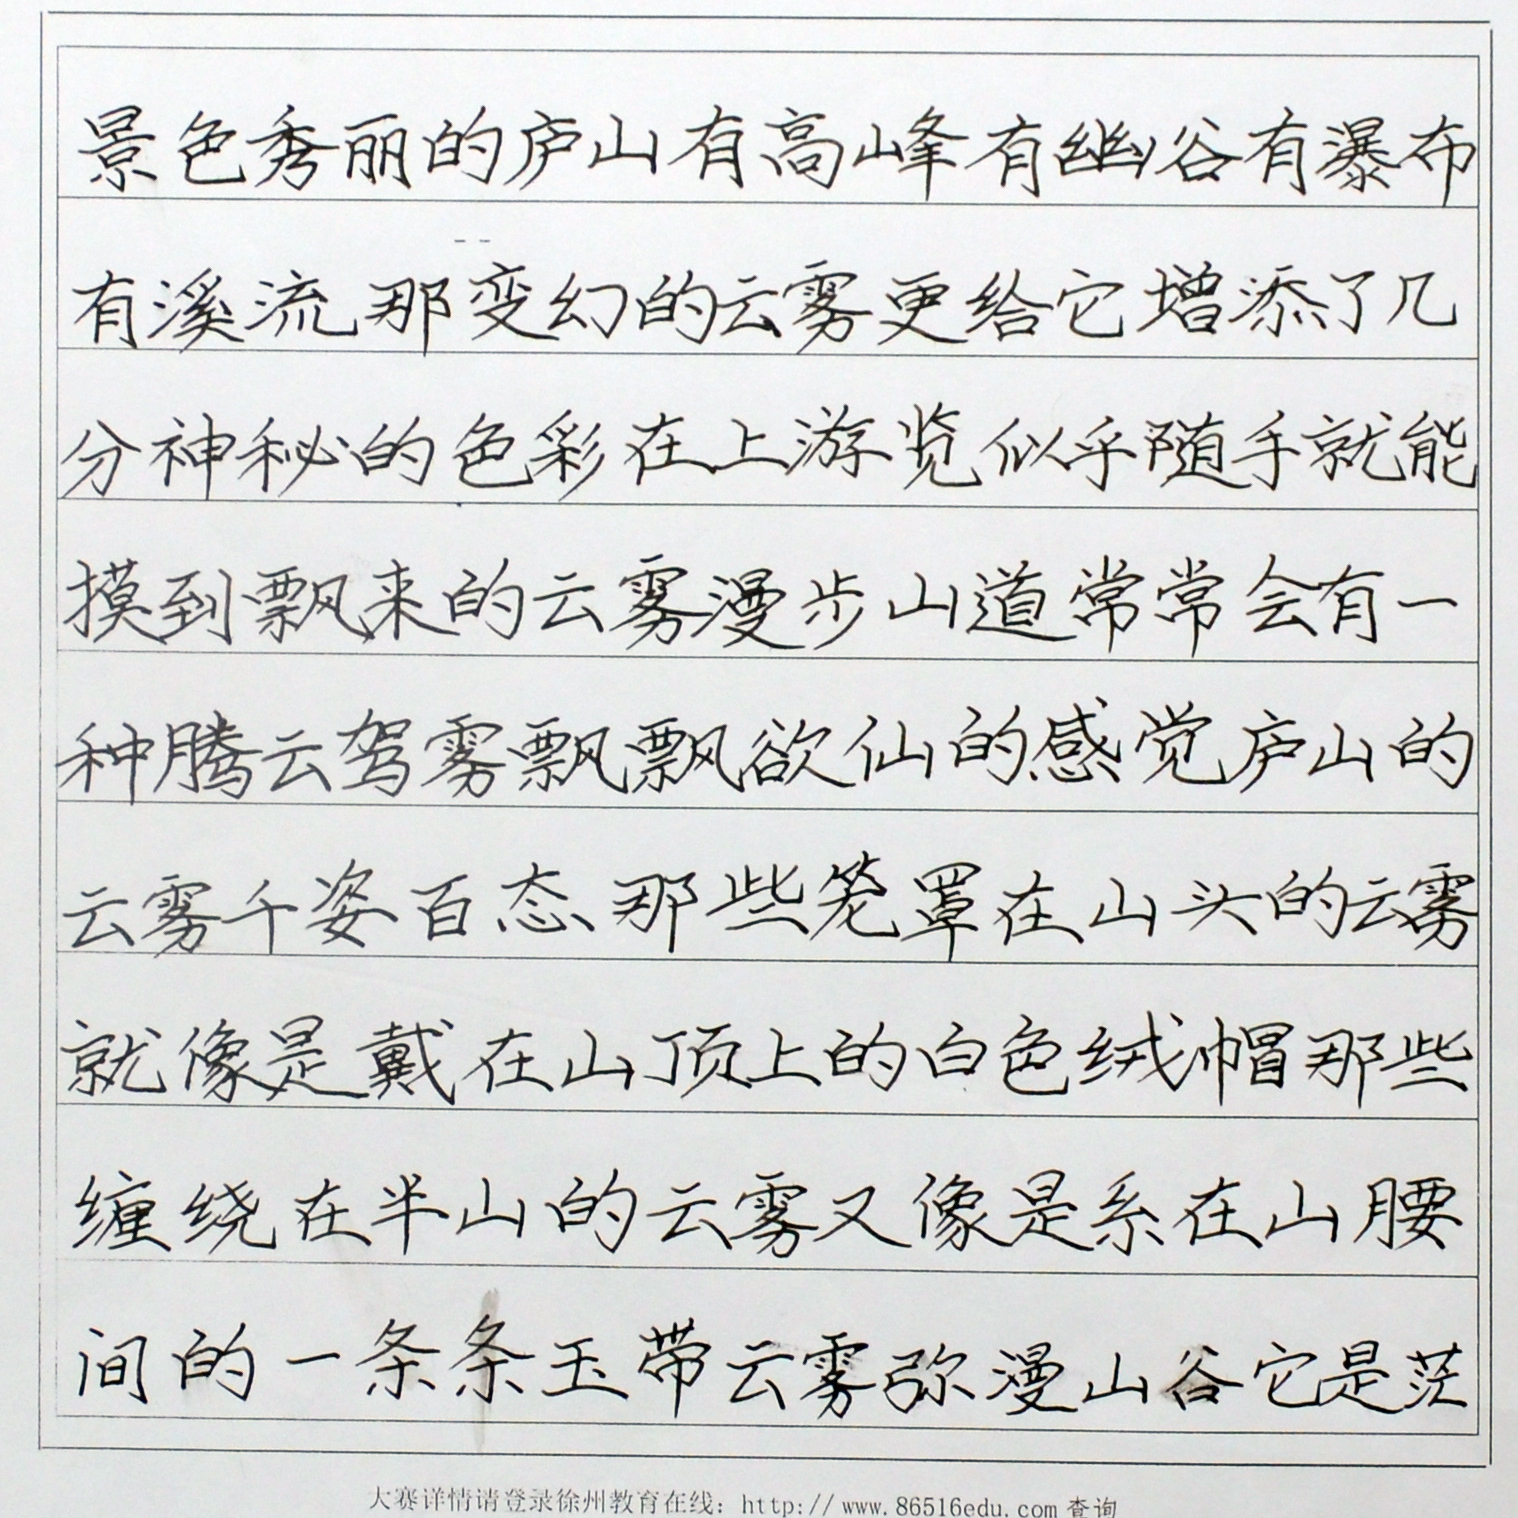 景色秀丽的庐山有高峰有幽谷有瀑布
有溪流那变幻的云雾更给它增添了几
分神秘的色彩在上游览似乎随手就能
摸到飘来的云雾漫步山道常常会有一
种腾云驾雾飘飘欲仙的感觉庐山的
云雾千姿百态那些笼罩在山头的云雾
就像是戴在山顶上的白色绒帽那些
缠绕在半山的云雾又像是系在山腰
间的一条条玉带云雾弥漫山谷它是茫
大赛详情请登录徐州教育在线：http://www.86516edu.com 查询